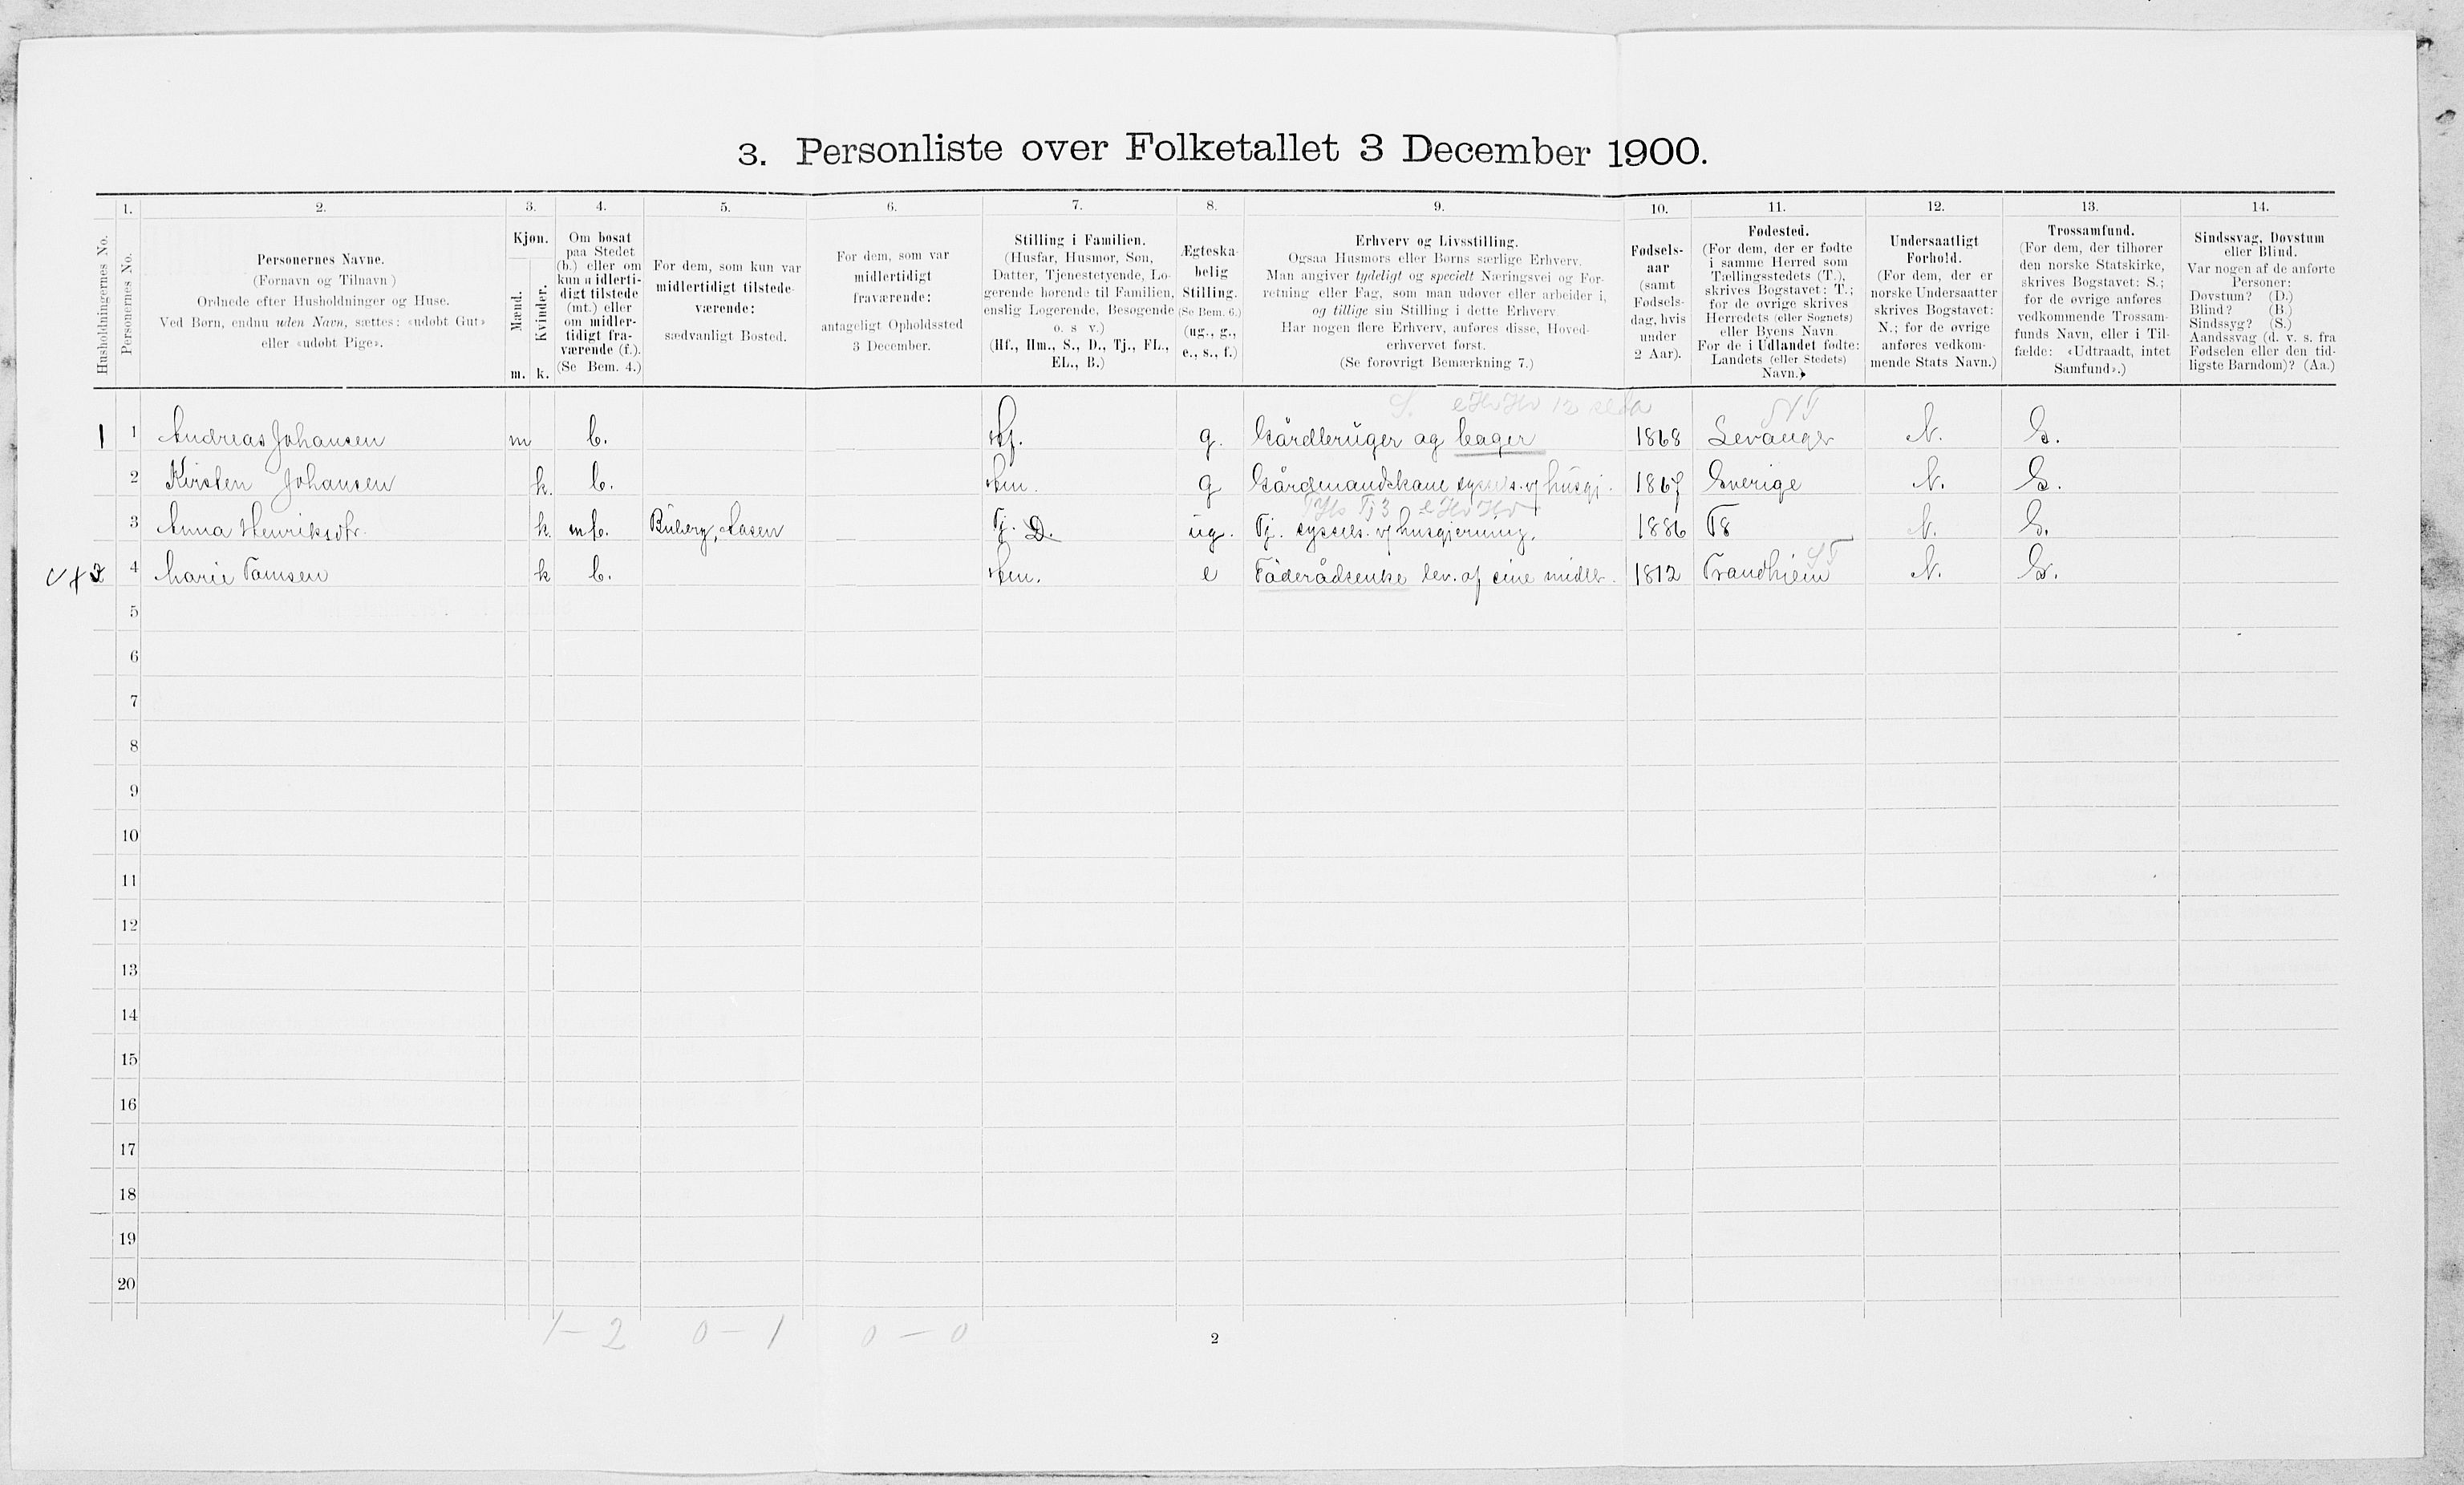 3. Personliste over Folketallet 3 December 1900.
1. 2. 3. 4. 5. 6. 7. 8. 9. 10. 11. 12. 13. 14.
Husholdningernes No.
Personernes No.
Personernes Navne.
(Fornavn og Tilnavn)
Ordnede efter Husholdninger og Huse.
Ved Børn, endnu uden Navn, sættes: «udøbt Gut»
eller «udøbt Pige».
Kjøn.
Mænd.
Kvinder.
m. k.
Om bosat
paa Stedet
(b.) eller om
kun midlerti-
digt tilstede
(mt.) eller
om midler-
tidigt fra-
værende (f.).
(Se Bem. 4.)
For dem, som kun var
midlertidigt tilstede-
værende:
sædvanligt Bosted.
For dem, som var
midlertidigt
fraværende:
antageligt Opholdssted
3 December.
Stilling i Familien.
(Husfar, Husmor, Søn,
Datter, Tjenestetyende, Lo-
gerende hørende til Familien,
enslig Logerende, Besøgende
o. s v.)
(Hf., Hm., S., D., Tj., FL.,
EL., B.)
Ægteska-
belig
Stilling.
(Se Bem. 6.)
(ug., g.,
e., s., f.)
Erhverv og Livsstilling.
Ogsaa Husmors eller Børns særlige Erhverv.
Man angiver tydeligt og specielt Næringsvei og For-
retning eller Fag, som man udøver eller arbeider i,
og tillige sin Stilling i dette Erhverv.
Har nogen flere Erhverv, anføres disse, Hoved-
erhvervet først.
(Se forøvrigt Bemærkning 7.)
Fødsels-
aar
(samt
Fødsels-
dag, hvis
under
2 Aar).
Fødested.
(For dem, der er fødte
i samme Herred som
Tællingsstedets (T.),
skrives Bogstavet: T.;
for de øvrige skrives
Herredets (eller Sognets)
eller Byens Navn.
For de i Udlandet fødte:
Landets (eller Stedets)
Navn.)
Undersaatligt
Forhold.
(For dem, der er
norske Undersaatter
skrives Bogstavet:
N.; for de øvrige
anføres vedkom-
mende Stats Navn.)
Trossamfund.
(For dem, der tilhører
den norske Statskirke,
skrives Bogstavet: S.;
for de øvrige anføres
vedkommende Trossam-
funds Navn, eller i Til-
fælde: «Udtraadt, intet
Samfund».)
Sindssvag, Døvstum
eller Blind.
Var nogen af de anførte
Personer:
Døvstum? (D.)
Blind? (B.)
Sindssyg? (S.)
Aandssvag (d. v. s. fra
Fødselen eller den tid-
ligste Barndom)? (Aa.)
1 1 Andreas Johansen m b. Hf. g. Gårdbruger og bager 1868 Levanger N. S.
2 Kirsten Johansen k. b. Hm. g Gårdmandskone syssels. v/ husgj. 1867 Sverige N. S.
3 Anna Henriksdtr. k. mt. Buberg, Aasen Tj. D. ug. Tj. syssels. v/ husgjerning. 1886 N. S.
2 4 Marie Tomsen k b. Hm. e Föderådsenke lev. af sine midler. 1812 Trondhiem N. S.
5
6
7
8
9
10
11
12
13
14
15
16
17
18
19
20
1 - 2 0 - 1 0 - 0
2